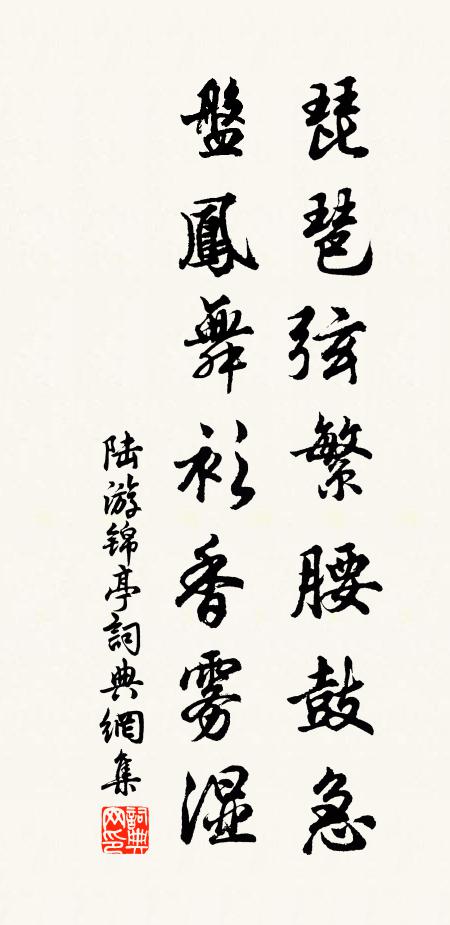 琵琶弦繁腰鼓急
盤鳳舞衫香雾湿
陆游锦亭詞典網集
詞典网印